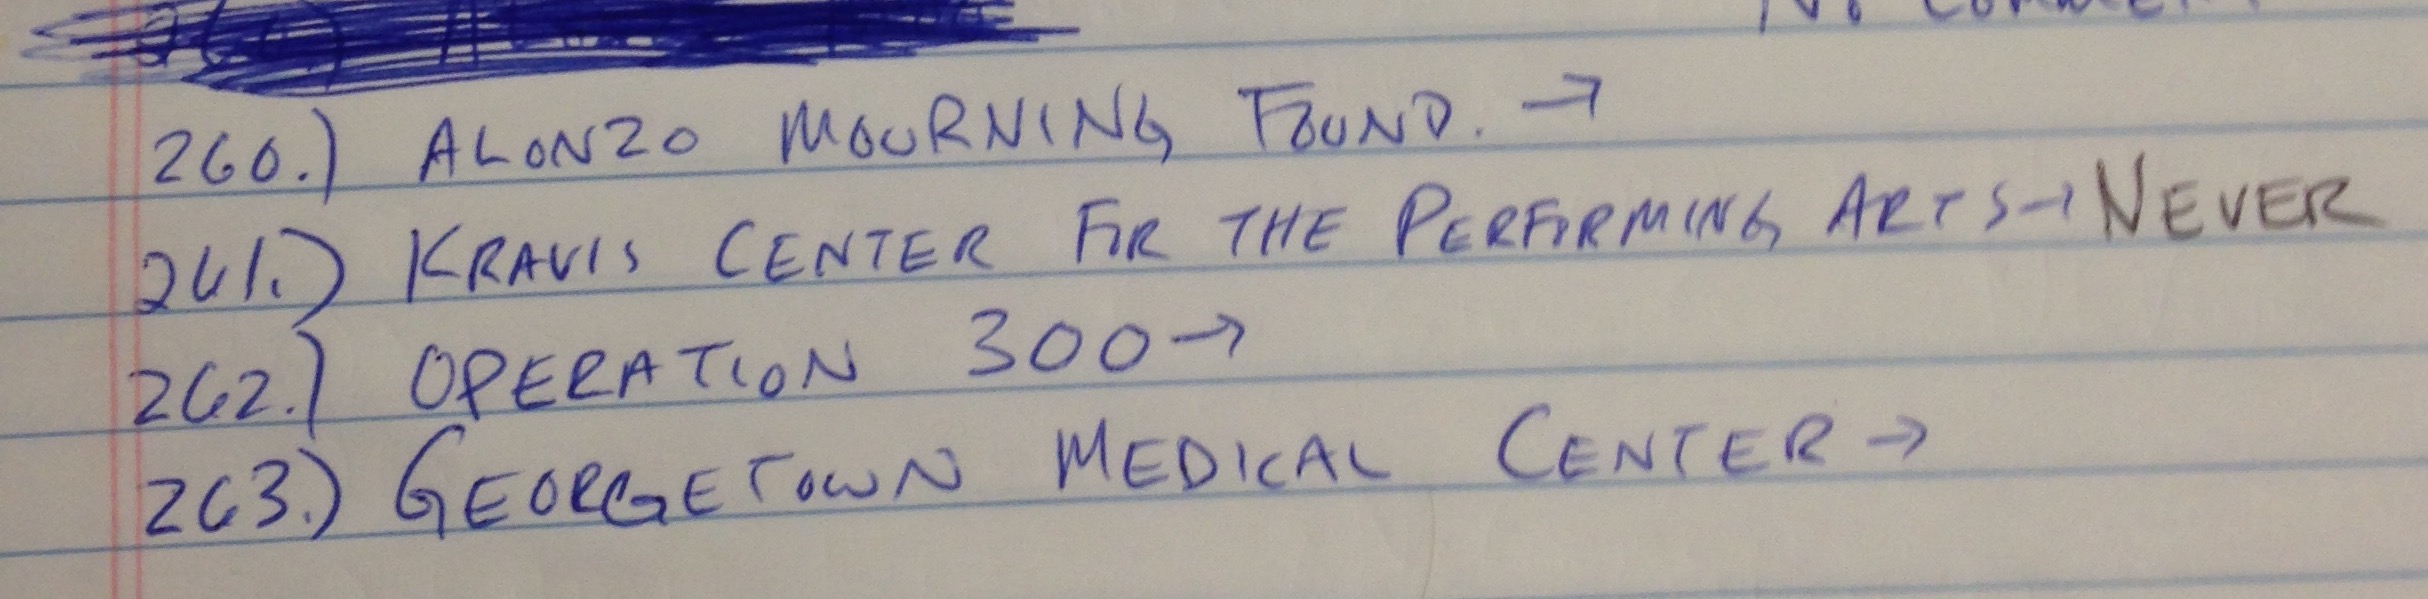 No comment
260.) ALONZO MOURNING FOUND. →
261.) KRAVIS CENTER FOR THE PERFORMING ARTS → NEVER
262.) OPERATION 300 →
263.) GEORGETOWN MEDICAL CENTER →